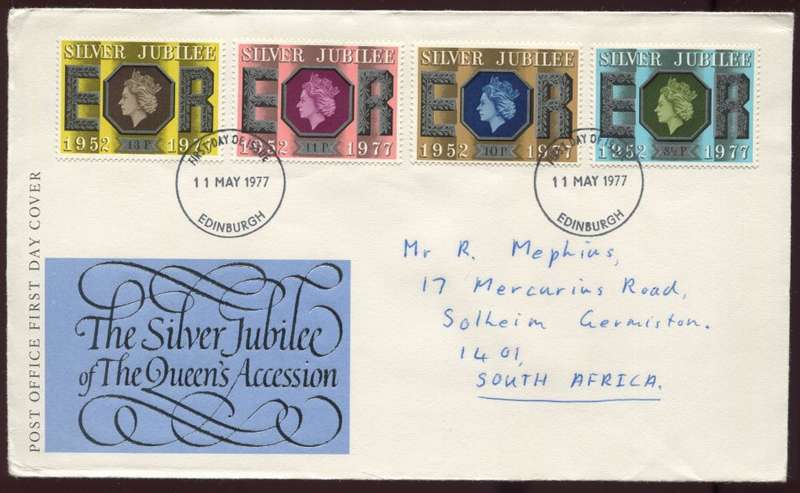 SILVER JUBILEE
E R
1952 13P. 1977
SILVER JUBILEE
E R
1952 11P. 1977
SILVER JUBILEE
E R
1952 10P. 1977
SILVER JUBILEE
E R
1952 8½P. 1977
FIRST DAY OF ISSUE
11 MAY 1977
EDINBURGH
FIRST DAY OF ISSUE
11 MAY 1977
EDINBURGH
POST OFFICE FIRST DAY COVER
The Silver Jubilee
of The Queen's Accession
Mr R. Mephius,
17 Mercurius Road,
Solheim Germiston.
1401,
SOUTH AFRICA.